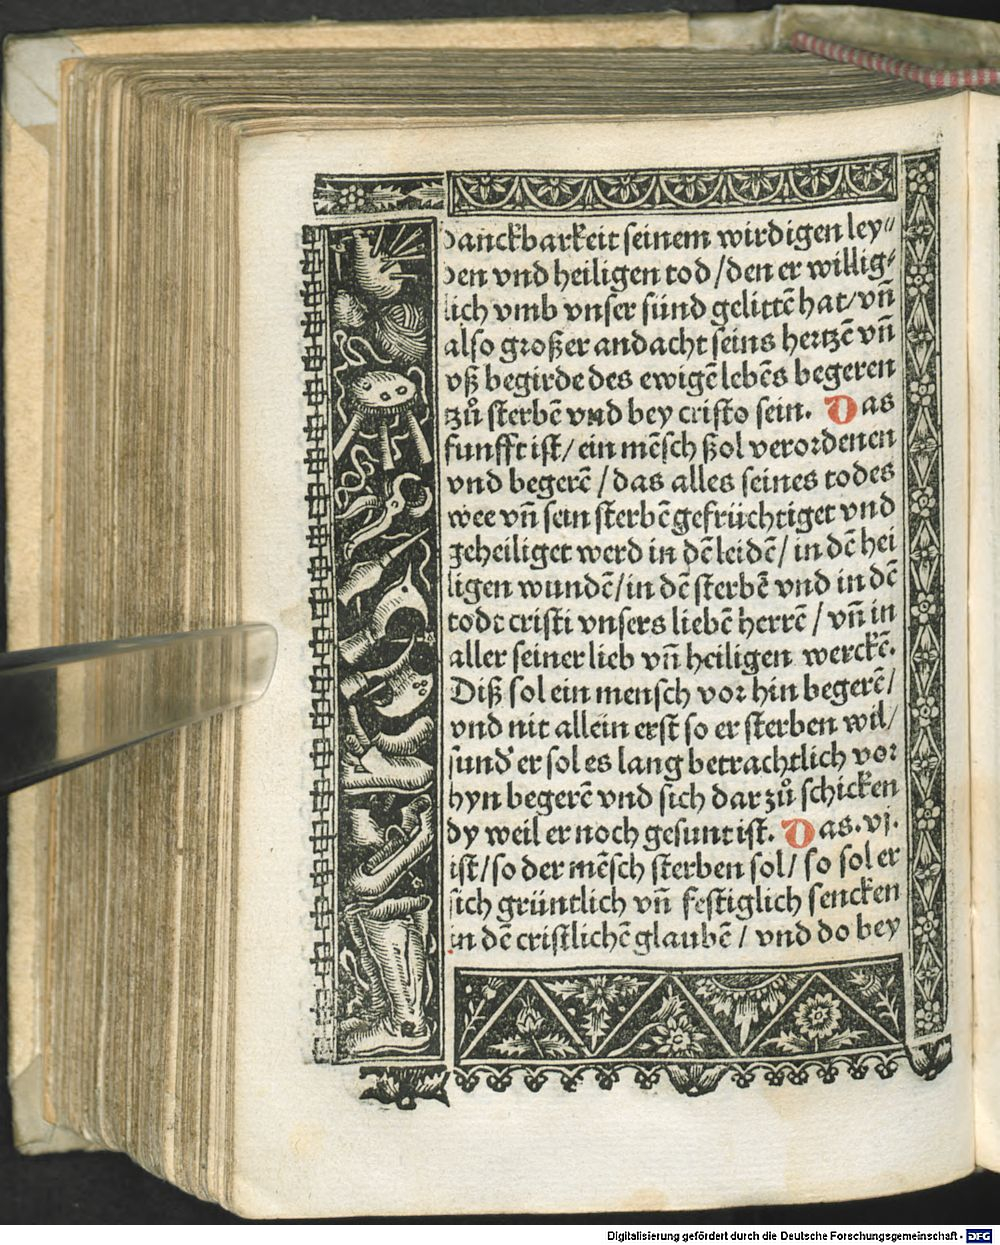 danckbarkeit seinem wirdigen ley⸗
den vnd heiligen tod / den er willig⸗
lich vmb vnser sünd gelittē hat / vn̄
also großer andacht seins hertzē vn̄
vß begirde des ewigē lebēs begeren
zů sterbē vnd bey cristo sein. Das
funfft ist / ein mēsch ßol verordenen
vnd begerē / das alles seines todes
wee vn̄ sein sterbē gefrüchtiget vnd
geheiliget werd in dē leidē / in dē hei
ligen wundē / in dē sterbē vnd in dē
tode cristi vnsers liebē herrē / vn̄ in
aller seiner lieb vn̄ heiligen werckē.
Diß sol ein mensch vor hin begerē /
vnd nit allein erst so er sterben wil /
sund' er sol es lang betrachtlich vor
hyn begerē vnd sich dar zů schicken
dy weil er noch gesunt ist. Das .vj.
ist / so der mēsch sterben sol / so sol er
sich gründtlich vn̄ festiglich sencken
in dē cristlichē glaubē / vnd do bey
Digitalisierung gefördert durch die Deutsche Forschungsgemeinschaft - DFG